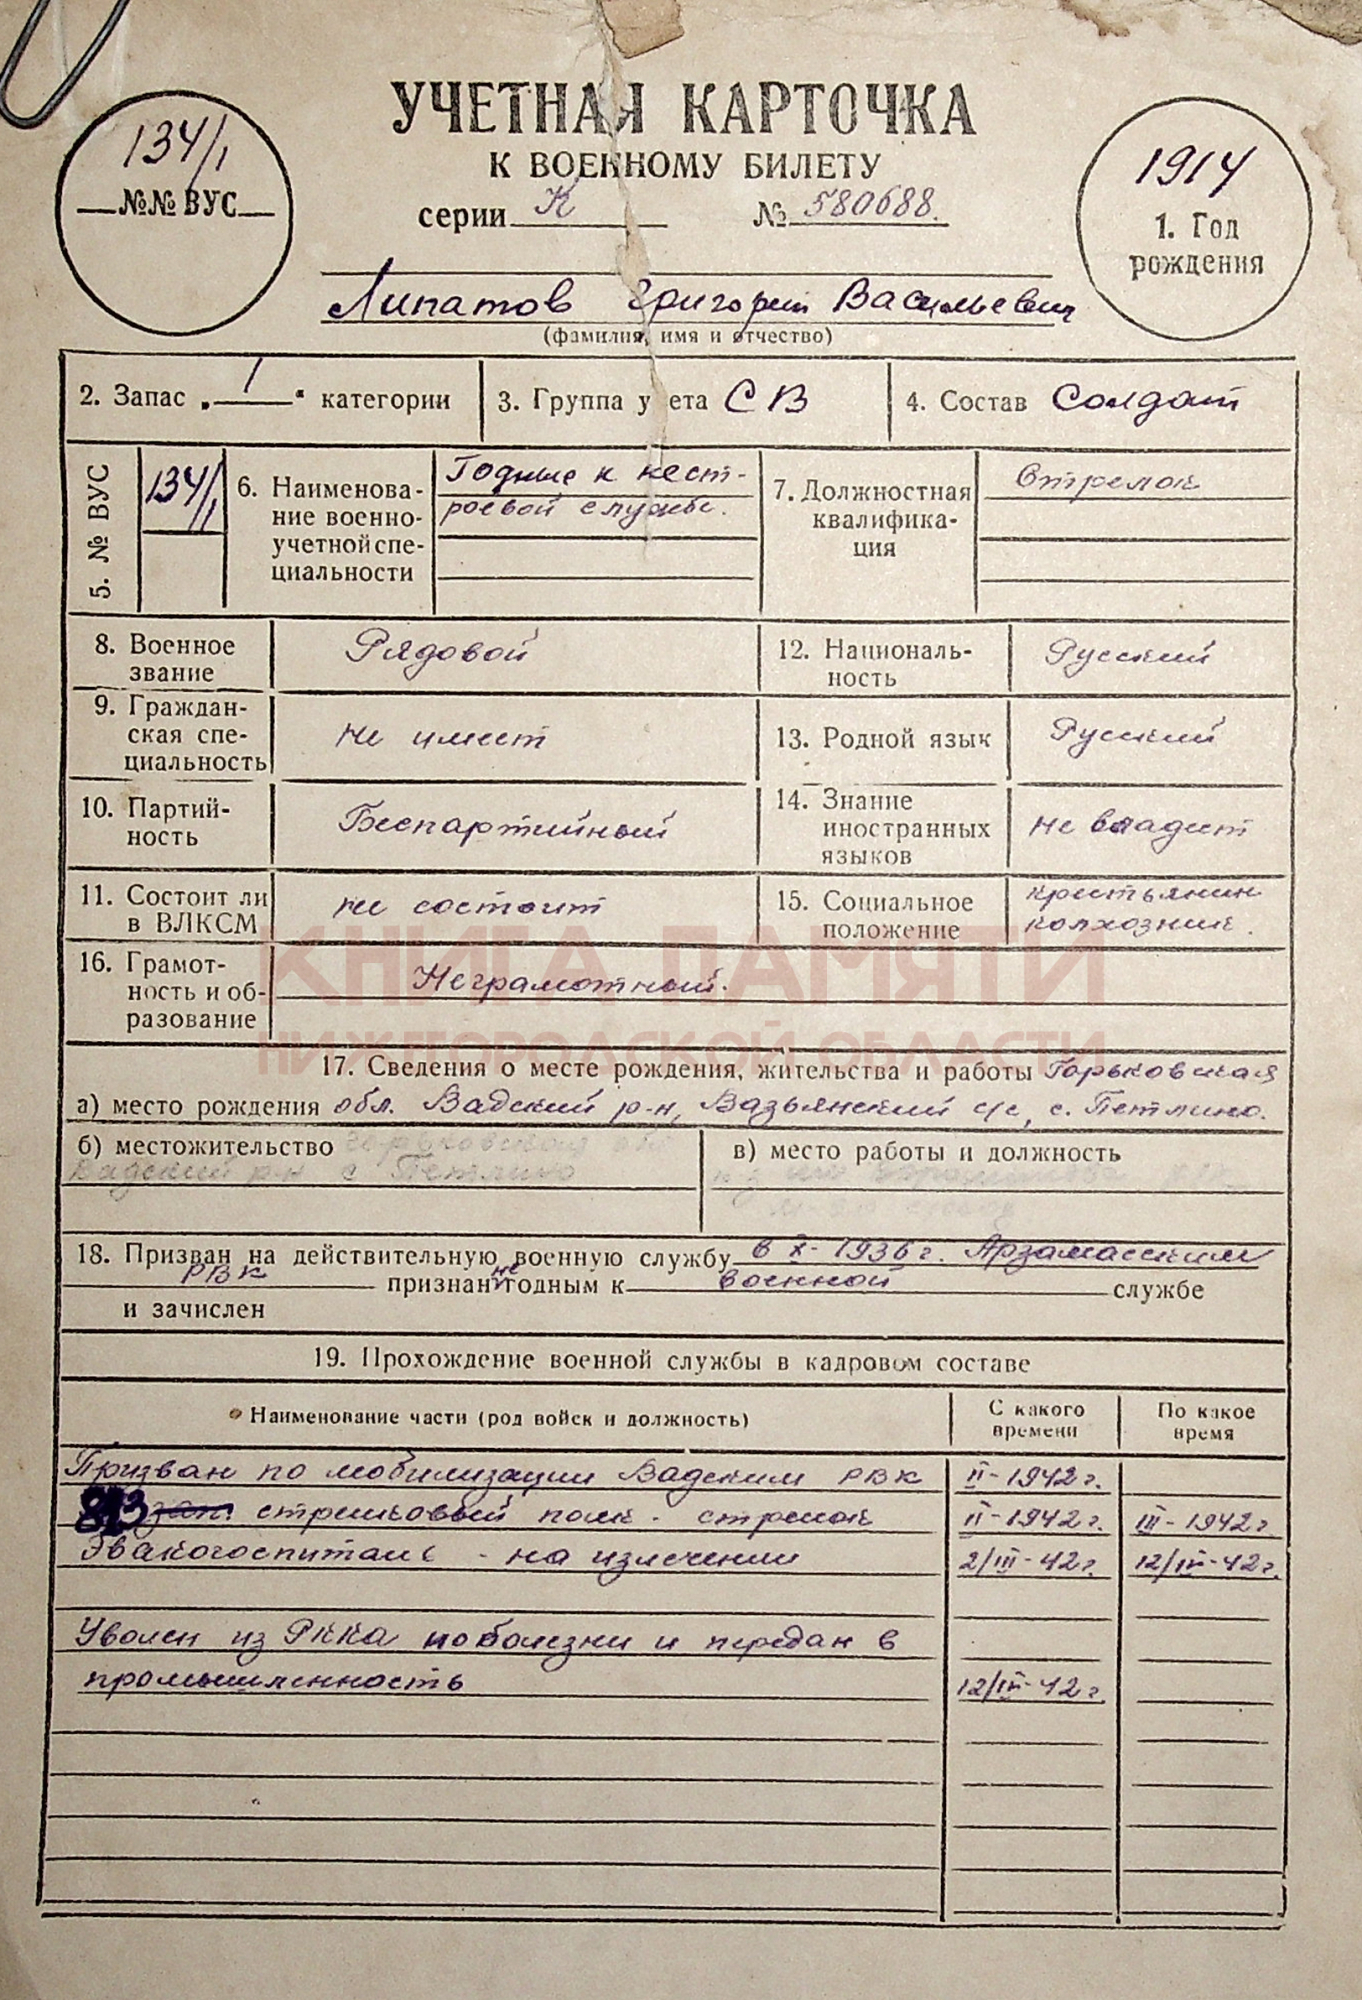 УЧЕТНАЯ КАРТОЧКА
К ВОЕННОМУ БИЛЕТУ
серии К № 580688.
134/1
№№ ВУС
1914
1. Год
рождения
Липатов Григорий Васильевич
(фамилия, имя и отчество)
2. Запас „1“ категории
3. Группа учета СВ
4. Состав Солдат
5. № ВУС
134/1
6. Наименова-
ние военно-
учетной спе-
циальности
Годные к нест-
роевой службе.
7. Должностная
квалифика-
ция
Стрелок
8. Военное
звание
Рядовой
12. Националь-
ность
Русский
9. Граждан-
ская спе-
циальность
не имеет
13. Родной язык
Русский
10. Партий-
ность
Беспартийный
14. Знание
иностранных
языков
не владеет
11. Состоит ли
в ВЛКСМ
не состоит
15. Социальное
положение
крестьянин
колхозник.
16. Грамот-
ность и об-
разование
Неграмотный.
КНИГА ПАМЯТИ
НИЖЕГОРОДСКОЙ ОБЛАСТИ
17. Сведения о месте рождения, жительства и работы Горьковская
а) место рождения обл. Вадский р-н, Вазьянский с/с, с. Петлино.
б) местожительство Горьковская обл
Вадский р-н с Петлино
в) место работы и должность
18. Призван на действительную военную службу в X-1936 г. Арзамасским
РВК признан не годным к военной службе
и зачислен
19. Прохождение военной службы в кадровом составе
Наименование части (род войск и должность)
С какого
времени
По какое
время
Призван по мобилизации Вадским РВК II-1942 г.
зап. стрелковый полк - стрелок II-1942 г. III-1942 г.
Эвакогоспиталь - на излечении 2/III-42 г. 12/IV-42 г.
Уволен из РККА по болезни и передан в
промышленность 12/IV-42 г.